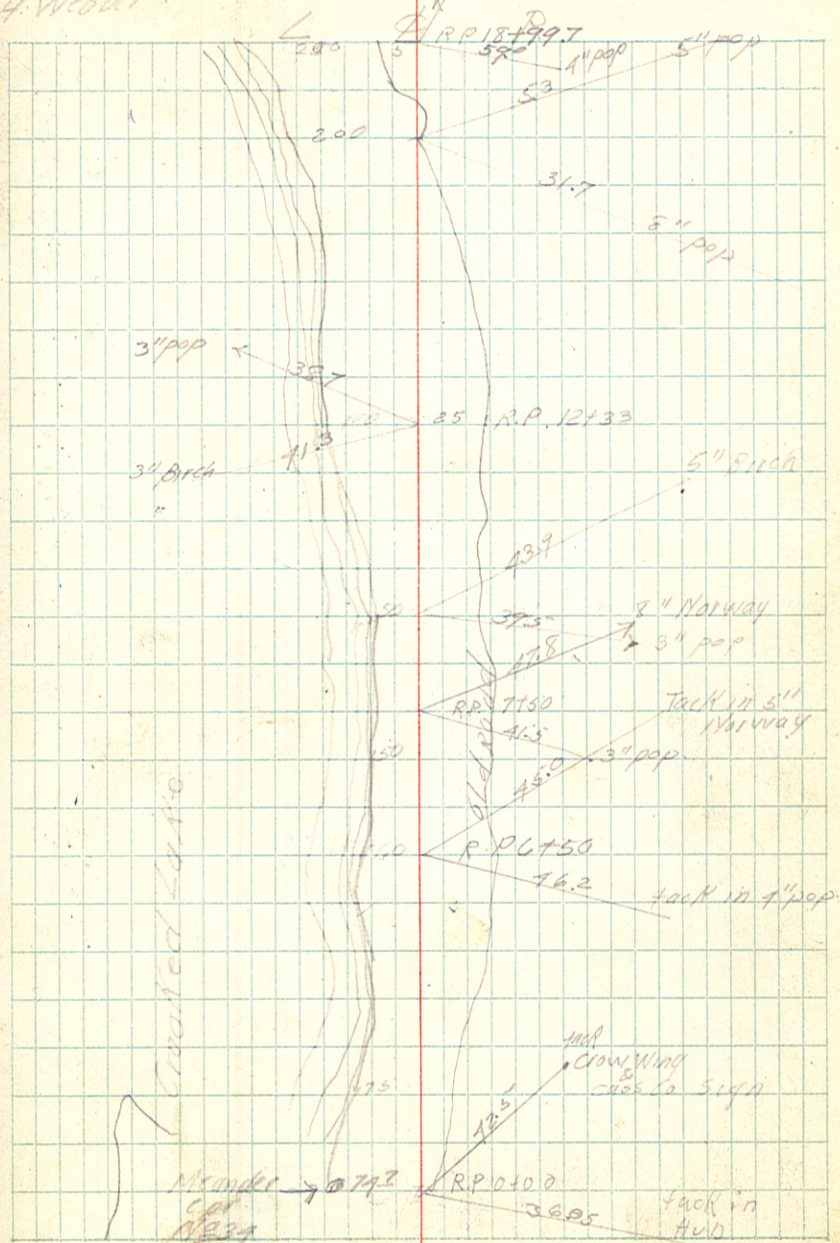 L ₵ R
200 5 R P 18+99.7
59⁰ 4" pop 5" pop
53
200
31.7
8" pop
3" pop
38.7
100 25 R.P. 12+33
41.3
3" Birch
"
5" Birch
43.9
50
39.5 8" Norway
47.8 3" pop
R.P. 7+50 Tack in 5"
Norway
41.5
150 3" pop
45.0
Old Road
160 R P 6+50
46.2
tack in 4" pop
Crooked Lake
tack
Crow Wing
&
Cass Co Sign
175
42.5'
Meander → 74²
Cor
R.P 0+00
36.85 tack in
Hub